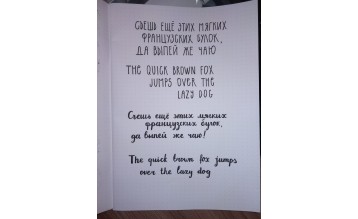 СЪЕШЬ ЕЩЁ ЭТИХ МЯГКИХ
ФРАНЦУЗСКИХ БУЛОК,
ДА ВЫПЕЙ ЖЕ ЧАЮ
THE QUICK BROWN FOX
JUMPS OVER THE
LAZY DOG
Съешь ещё этих мягких
французских булок,
да выпей же чаю!
The quick brown fox jumps
over the lazy dog